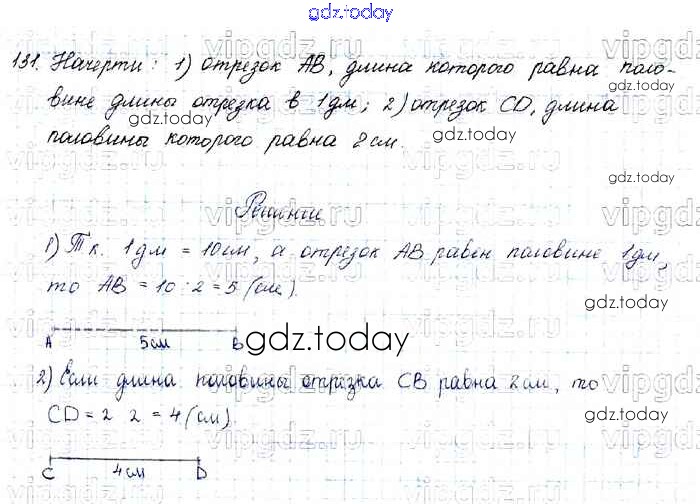 gdz.today
131. Начерти: 1) отрезок AB, длина которого равна поло-
вине длины отрезка в 1 дм; 2) отрезок CD, длина
gdz.today
половины которого равна 2 см.
gdz.today
vipgdz.ru
Решение
1) Т.к. 1 дм = 10 см, а отрезок AB равен половине 1 дм,
то AB = 10 : 2 = 5 (см).
gdz.today
A 5 см B
gdz.today
2) Если длина половины отрезка CB равна 2 см, то
CD = 2 2 = 4 (см).
gdz.today
vipgdz.ru
C 4 см D
gdz.today